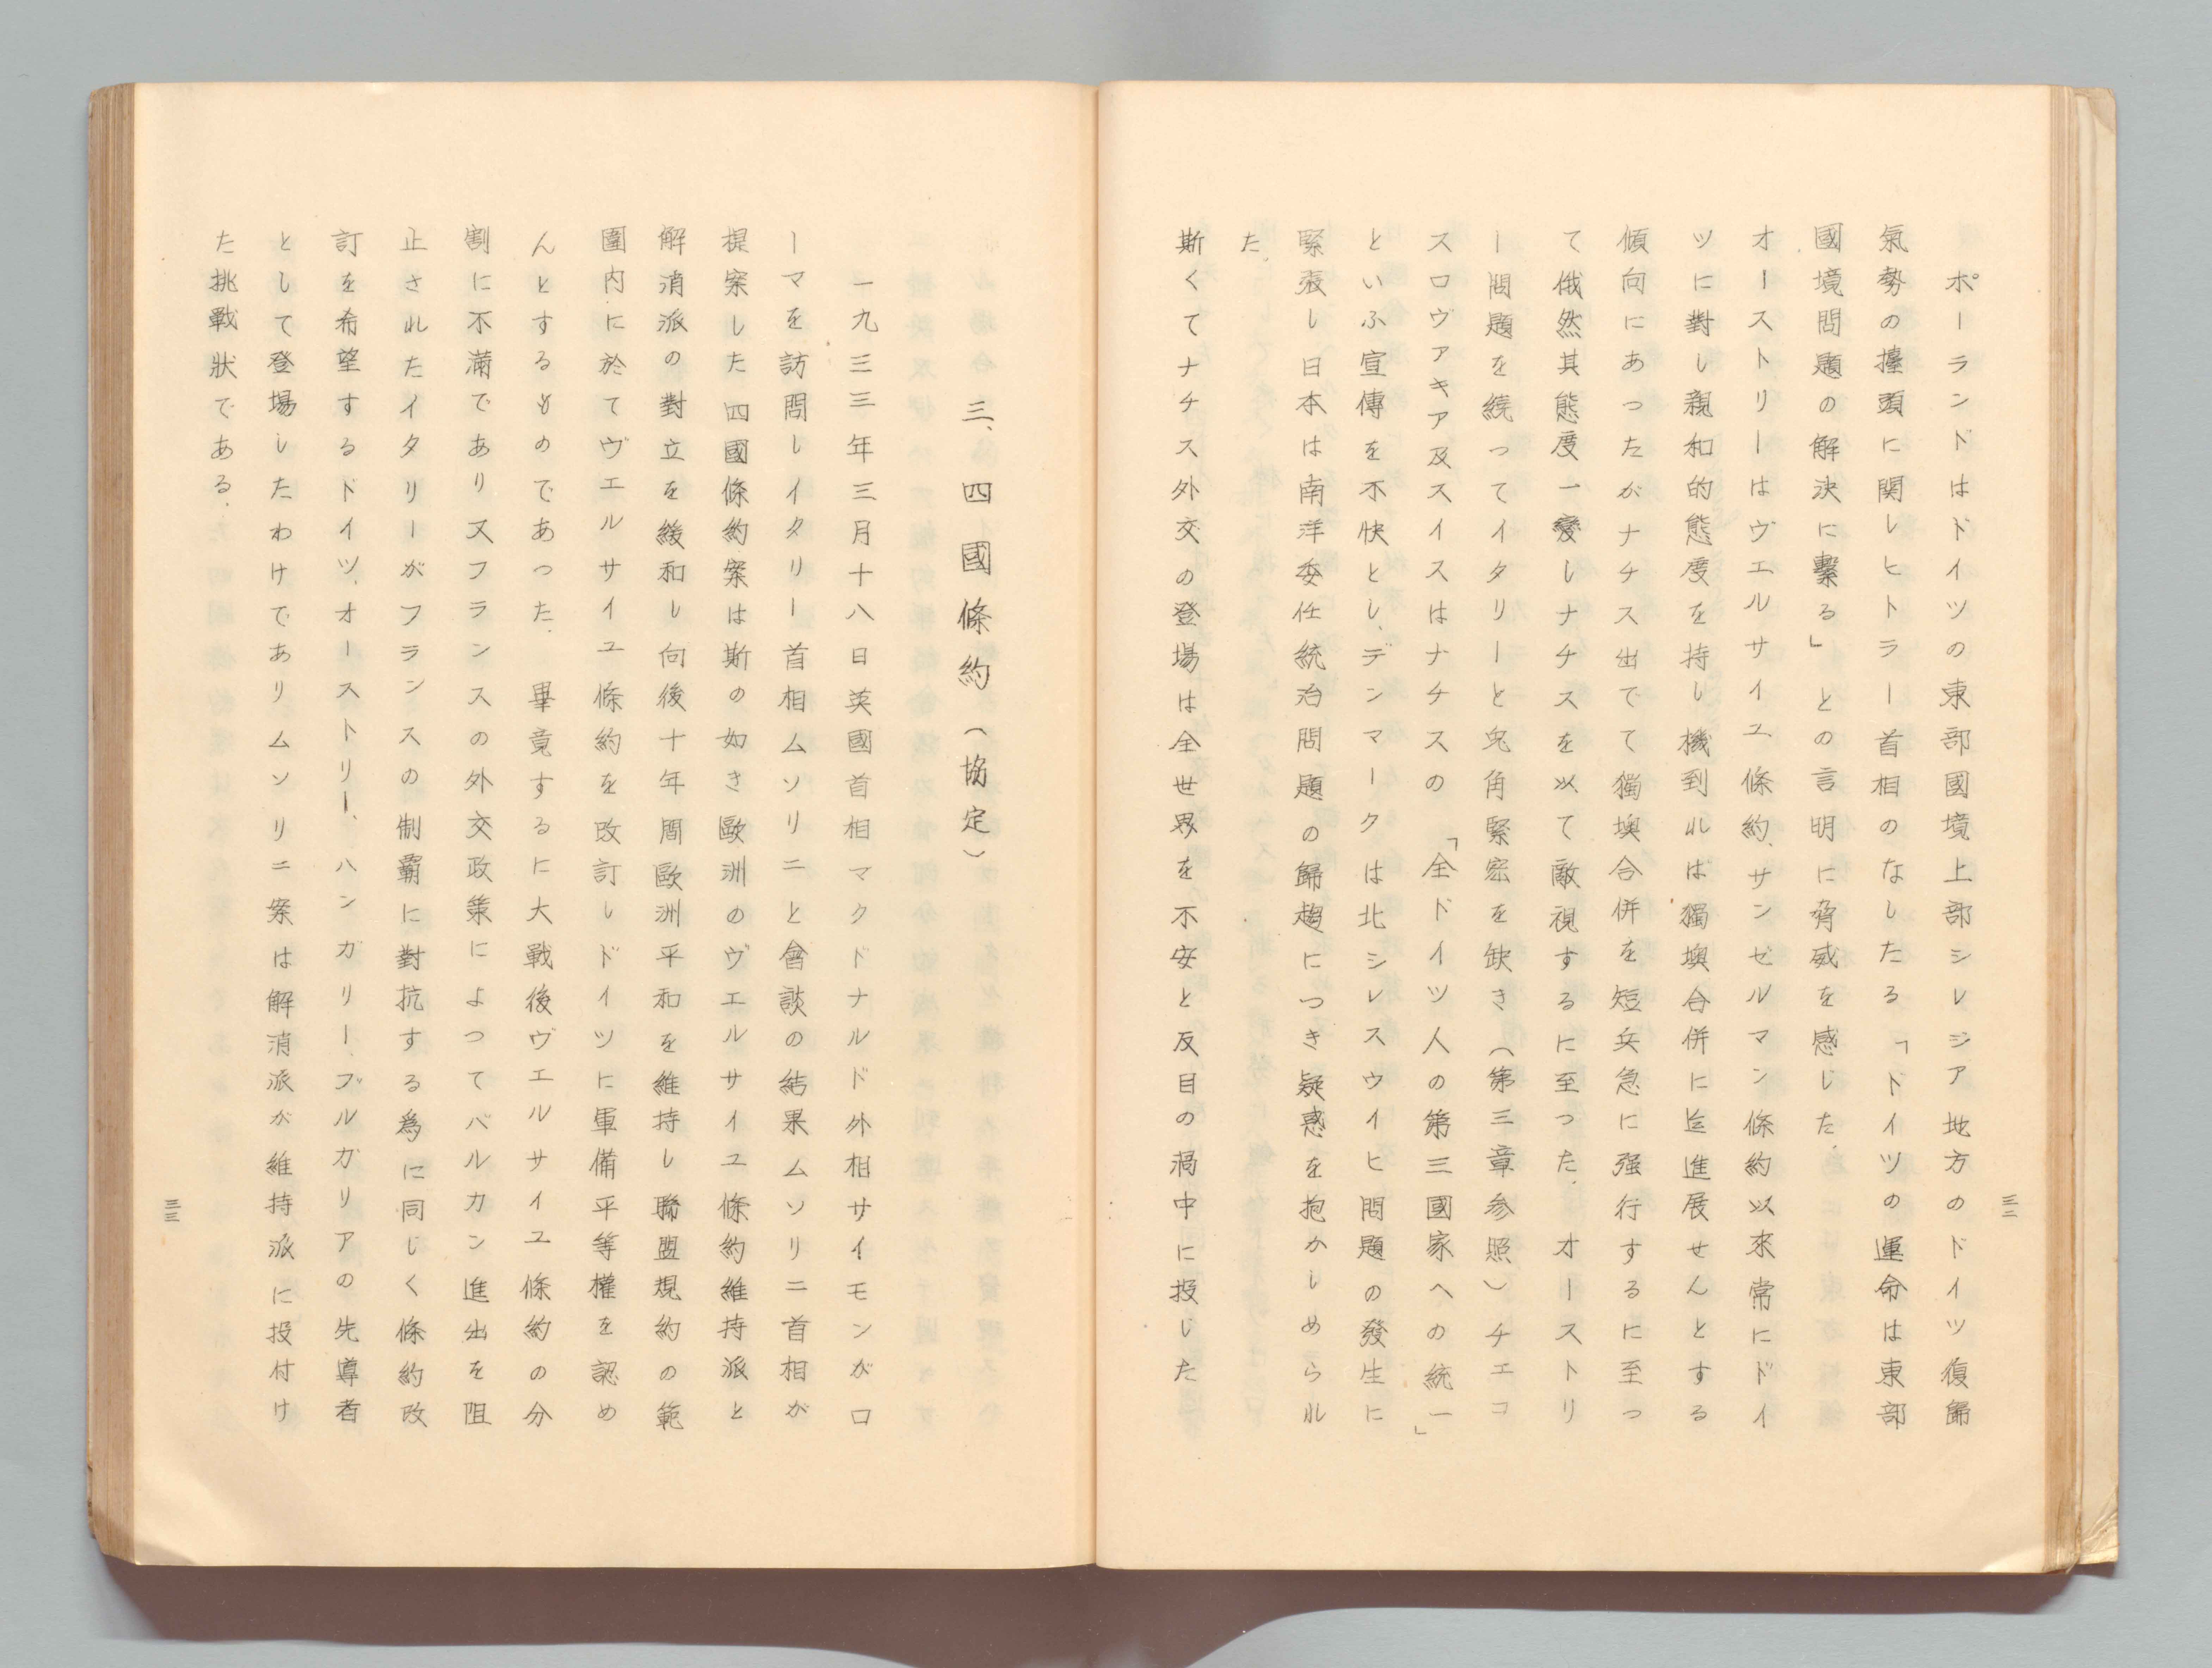 ポーランドはドイツの東部國境上部シレジア地方のドイツ復歸
氣勢の擡頭に関しヒトラー首相のなしたる「ドイツの運命は東部
國境問題の解決に繋る」との言明に脅威を感じた.
オーストリーはヴエルサイユ條約、サンゼルマン條約以來常にドイ
ツに對し親和的態度を持し機到れば獨墺合併に迄進展せんとする
傾向にあつたがナチス出でて獨墺合併を短兵急に强行するに至つ
て俄然其態度一變しナチスを以て敵視するに至つた. オーストリ
ー問題を繞つてイタリーと兎角緊密を缺き（第三章参照）チエコ
スロヴアキア及スイスはナチスの「全ドイツ人の第三國家への統一」
といふ宣傳を不快とし、デンマークは北シレスウイヒ問題の發生に
緊張し日本は南洋委任統治問題の歸趨につき疑惑を抱かしめられ
た.
斯くてナチス外交の登場は全世界を不安と反目の渦中に投じた
三二
三、四國條約（協定）
一九三三年三月十八日英國首相マクドナルド外相サイモンがロ
ーマを訪問しイタリー首相ムソリニと會談の結果ムソリニ首相が
提案した四國條約案は斯の如き歐洲のヴエルサイユ條約維持派と
解消派の對立を緩和し向後十年間歐洲平和を維持し聯盟規約の範
圍内に於てヴエルサイユ條約を改訂しドイツに軍備平等權を認め
んとするものであつた. 畢竟するに大戰後ヴエルサイユ條約の分
割に不滿であり又フランスの外交政策によつてバルカン進出を阻
止されたイタリーがフランスの制覇に對抗する為に同じく條約改
訂を希望するドイツ、オーストリー、ハンガリー、ブルガリアの先導者
として登場したわけでありムソリニ案は解消派が維持派に投付け
た挑戰狀である.
三三